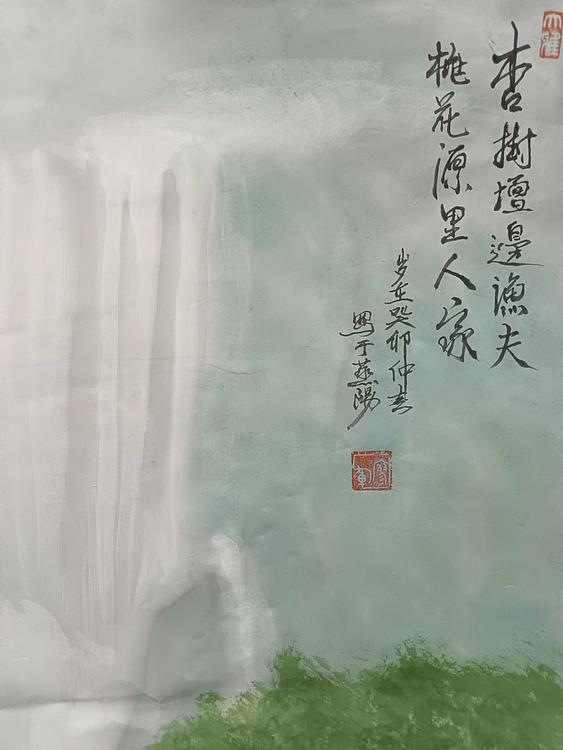 大雅
杏樹壇邊漁夫
桃花源里人家
岁在癸卯仲春
寫于陽